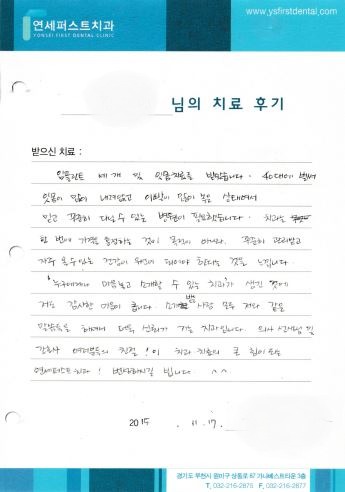 연세퍼스트치과
YONSEI FIRST DENTAL CLINIC
www.ysfirstdental.com
님의 치료 후기
받으신 치료 :
임플란트 세 개 및 잇몸치료를 받았습니다. 40대에 벌써
잇몸이 많이 내려앉고 이빨이 많이 녹은 상태여서
믿고 꾸준히 다닐 수 있는 병원이 필요했습니다. 치과는
한 번에 가격을 흥정하는 것이 목적이 아니라, 꾸준히 관리받고
자주 올 수 있는 건강이 우선이 되어야 한다는 것을 느낍니다.
'누구에게나 마음놓고 소개할 수 있는 치과'가 생긴 것에
저는 감사한 마음이 큽니다. 소개 사람 모두 저와 같은
말씀들을 하셔서 더욱 신뢰가 가는 치과입니다. 의사 선생님 및
간호사 여러분들의 친절! 이 치과 치료의 큰 힘이 되는
연세퍼스트치과! 번창하시길 빕니다. ^^
2015. 11. 17.
경기도 부천시 원미구 상동로 87 가나베스트타운 3층
T. 032-216-2875 F. 032-216-2877